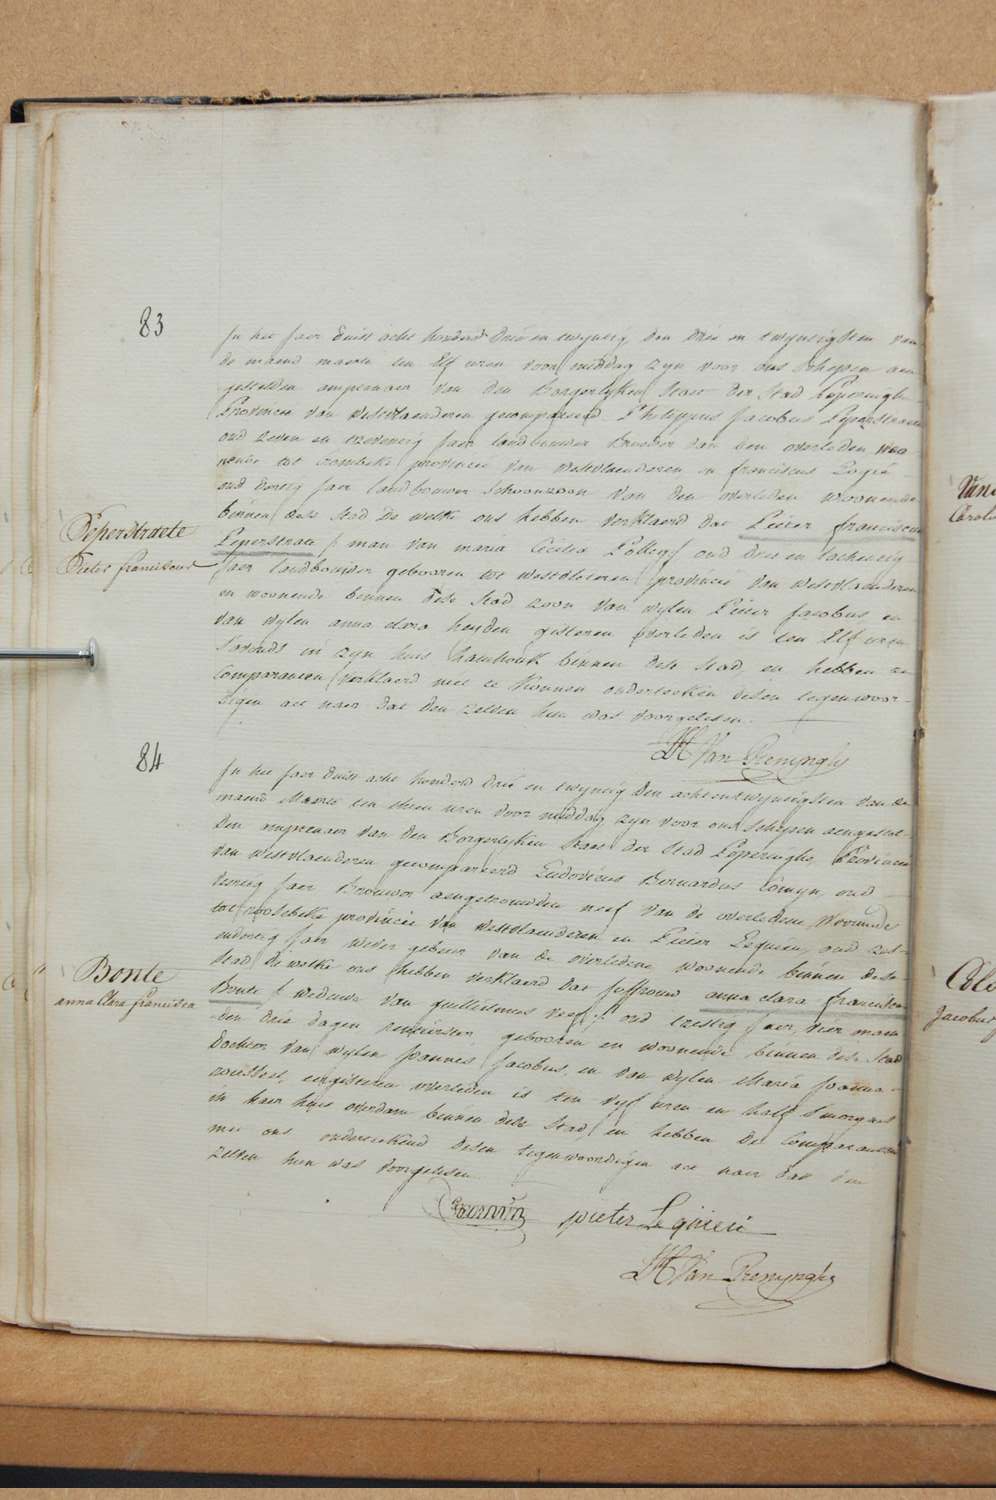 83
In het jaer duist acht honderd drie en twyntig den drie en twyntigsten van
de maend maerte ten Elf uren voor middag zyn voor ons schepen aen
gestelden ampenaer van den Borgerlyken staet der stad Poperinghe
Provincie van Westvlaenderen gecompareerd Philippus Jacobus Peperstraete
oud zeven en tzeventig jaer landbouwer Broeder van den overleden woo
nende tot Crombeke provincie van westvlaenderen en franciscus
oud dertig jaer landbouwer schoonzoon van den overleden woonende
binnen dese stad De welke ons hebben verklaerd dat Pieter franciscus
Peperstraete / man van maria Cecilia / oud drie en tachentig
jaer landbouwer gebooren tot westvleteren provincie van westvlaenderen
en woonende binnen dese stad zoon van wylen Pieter Jacobus en
van wylen anna clara gisteren overleden is ten Elf uren
savends in zyn huis binnen dese stad, en hebben de
Comparanten verklaerd niet te konnen onderteeken desen tegenwoor-
digen act naer dat den zelven hun was voorgelesen.
Van Renynghe
Peperstraete
Pieter franciscus
84
In het jaer duist acht honderd drie en twyntig den achtentwyntigsten van de
maend Maerte ten thien uren voor middag zyn voor ons schepen aengestel-
den ampenaer van den Borgerlyken staet der stad Poperinghe, Provincie
van Westvlaenderen gecompareerd Ludovicus Bernardus Comyn, oud
dertig jaer Brouwer aengetrouwden neef van de overledene, woonende
tot provincie van westvlaenderen en Pieter Lequieu, oud
jaer wever gebuer van de overledene woonende binnen dese
stad, de welke ons hebben verklaerd dat joffrouw anna clara francisca
Bonte / weduwe van guillielmus / oud tzestig jaer, vier maen
den drie dagen gebooren en woonende binnen dese stad
Dochter van wylen Joannes Jacobus, en van wylen Maria Joanna
eergisteren overleden is ten vyf uren en half smorgens
in haer huys binnen dese stad, en hebben de Comparanten
met ons onderteekend desen tegenwoordigen act naer dat den
zelven hun was voorgelesen
Bonte
anna Clara francisca
pieter Lequieu
Van Renynghe